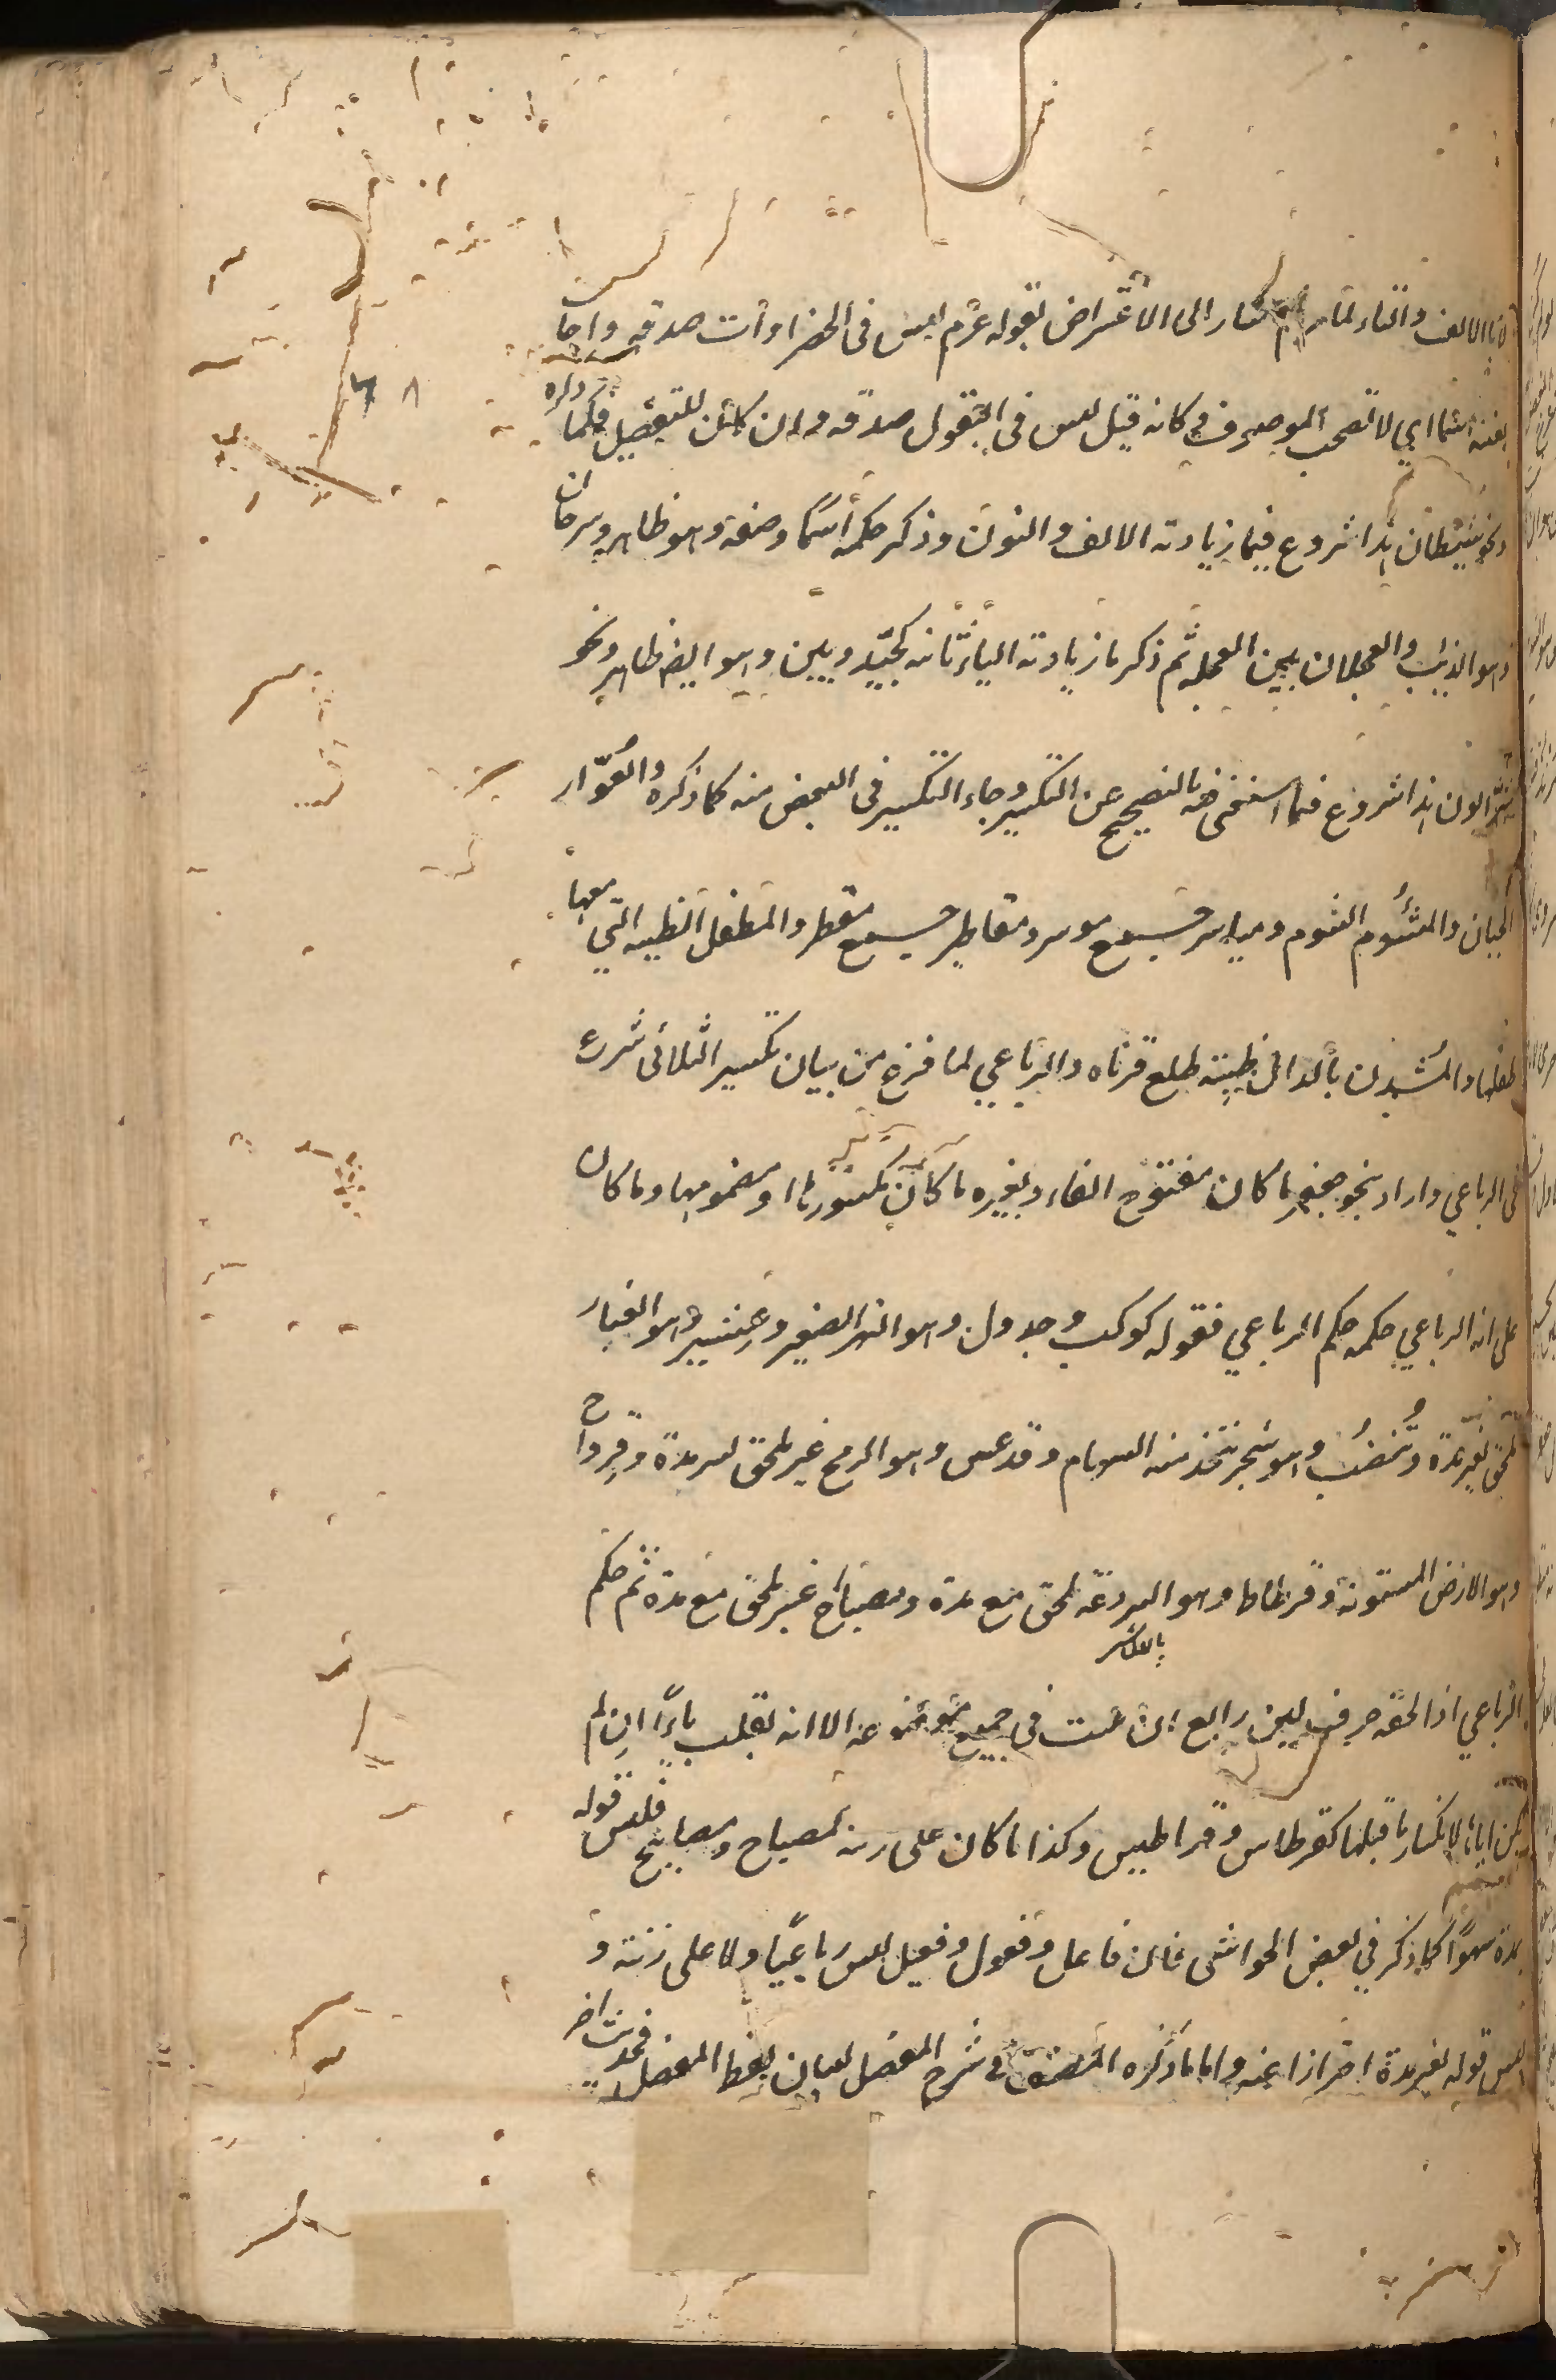 بالالف والتاء لما مر ثم اشار الى الاعتراض بقوله عزم ليس في الخضراوات صدقة واجا
بغلبته اسما اي لا تصحب الموصوف فكانه قيل ليس في البقول صدقة وان كان للتفضيل فكما ذكره
ونحو شيطان هذا شروع فيما زيادته الالف والنون وذكر حكمه اسما وصفة وهو ظاهر وسرحان
وهو الذئب والعجلان بين العجلة ثم ذكر ما زيادته الياء ثانية كجيد وبين وهو ايضا ظاهر ونحو
شرابون هذا شروع فيما استغنى فيه بالتصحيح عن التكسير وجاء التكسير في البعض منه كما ذكره والعوار
الجبان والمشؤم الشوم ومياسر جمع موسر ومفاطر جمع مفطر والمطفل الظبية التي معها
طفلها والمشدن بالدال ظبية طلع قرناه والرباعي لما فرغ من بيان تكسير الثلاثي شرع
في الرباعي واراد بنحو جعفر ما كان مفتوح الفاء وبغيره ما كان مكسورها او مضمومها وما كان
على زنة الرباعي حكمه حكم الرباعي فقوله كوكب وجدول وهو النهر الصغير وعثير وهو الغبار
ملحق بغير مدة وتنضب وهو شجر تتخذ منه السهام وقدعس وهو الرمح غير ملحق لمدة وقرواح
وهو الارض المستوية وقرطاط وهو البردعة ملحق مع مدة ومصباح غير ملحق مع مدة ثم حكم
الرباعي اذا لحقه حرف لين رابع ان يثبت في جميع تنوعه الا انه يقلب ياء ان لم
يكن اياها لانكسار ما قبلها كقرطاس وقراطيس وكذا ما كان على زنته كمصباح ومصابيح فليس قوله
مدة سهوا كما ذكر في بعض الحواشي فان فاعل وفعول وفعيل ليس رباعيا ولا على زنته و
ليس قوله بغير مدة احترازا عنه واما ما ذكره المصنف في شرح المفصل لبيان لفظ المفصل فحديث اخر